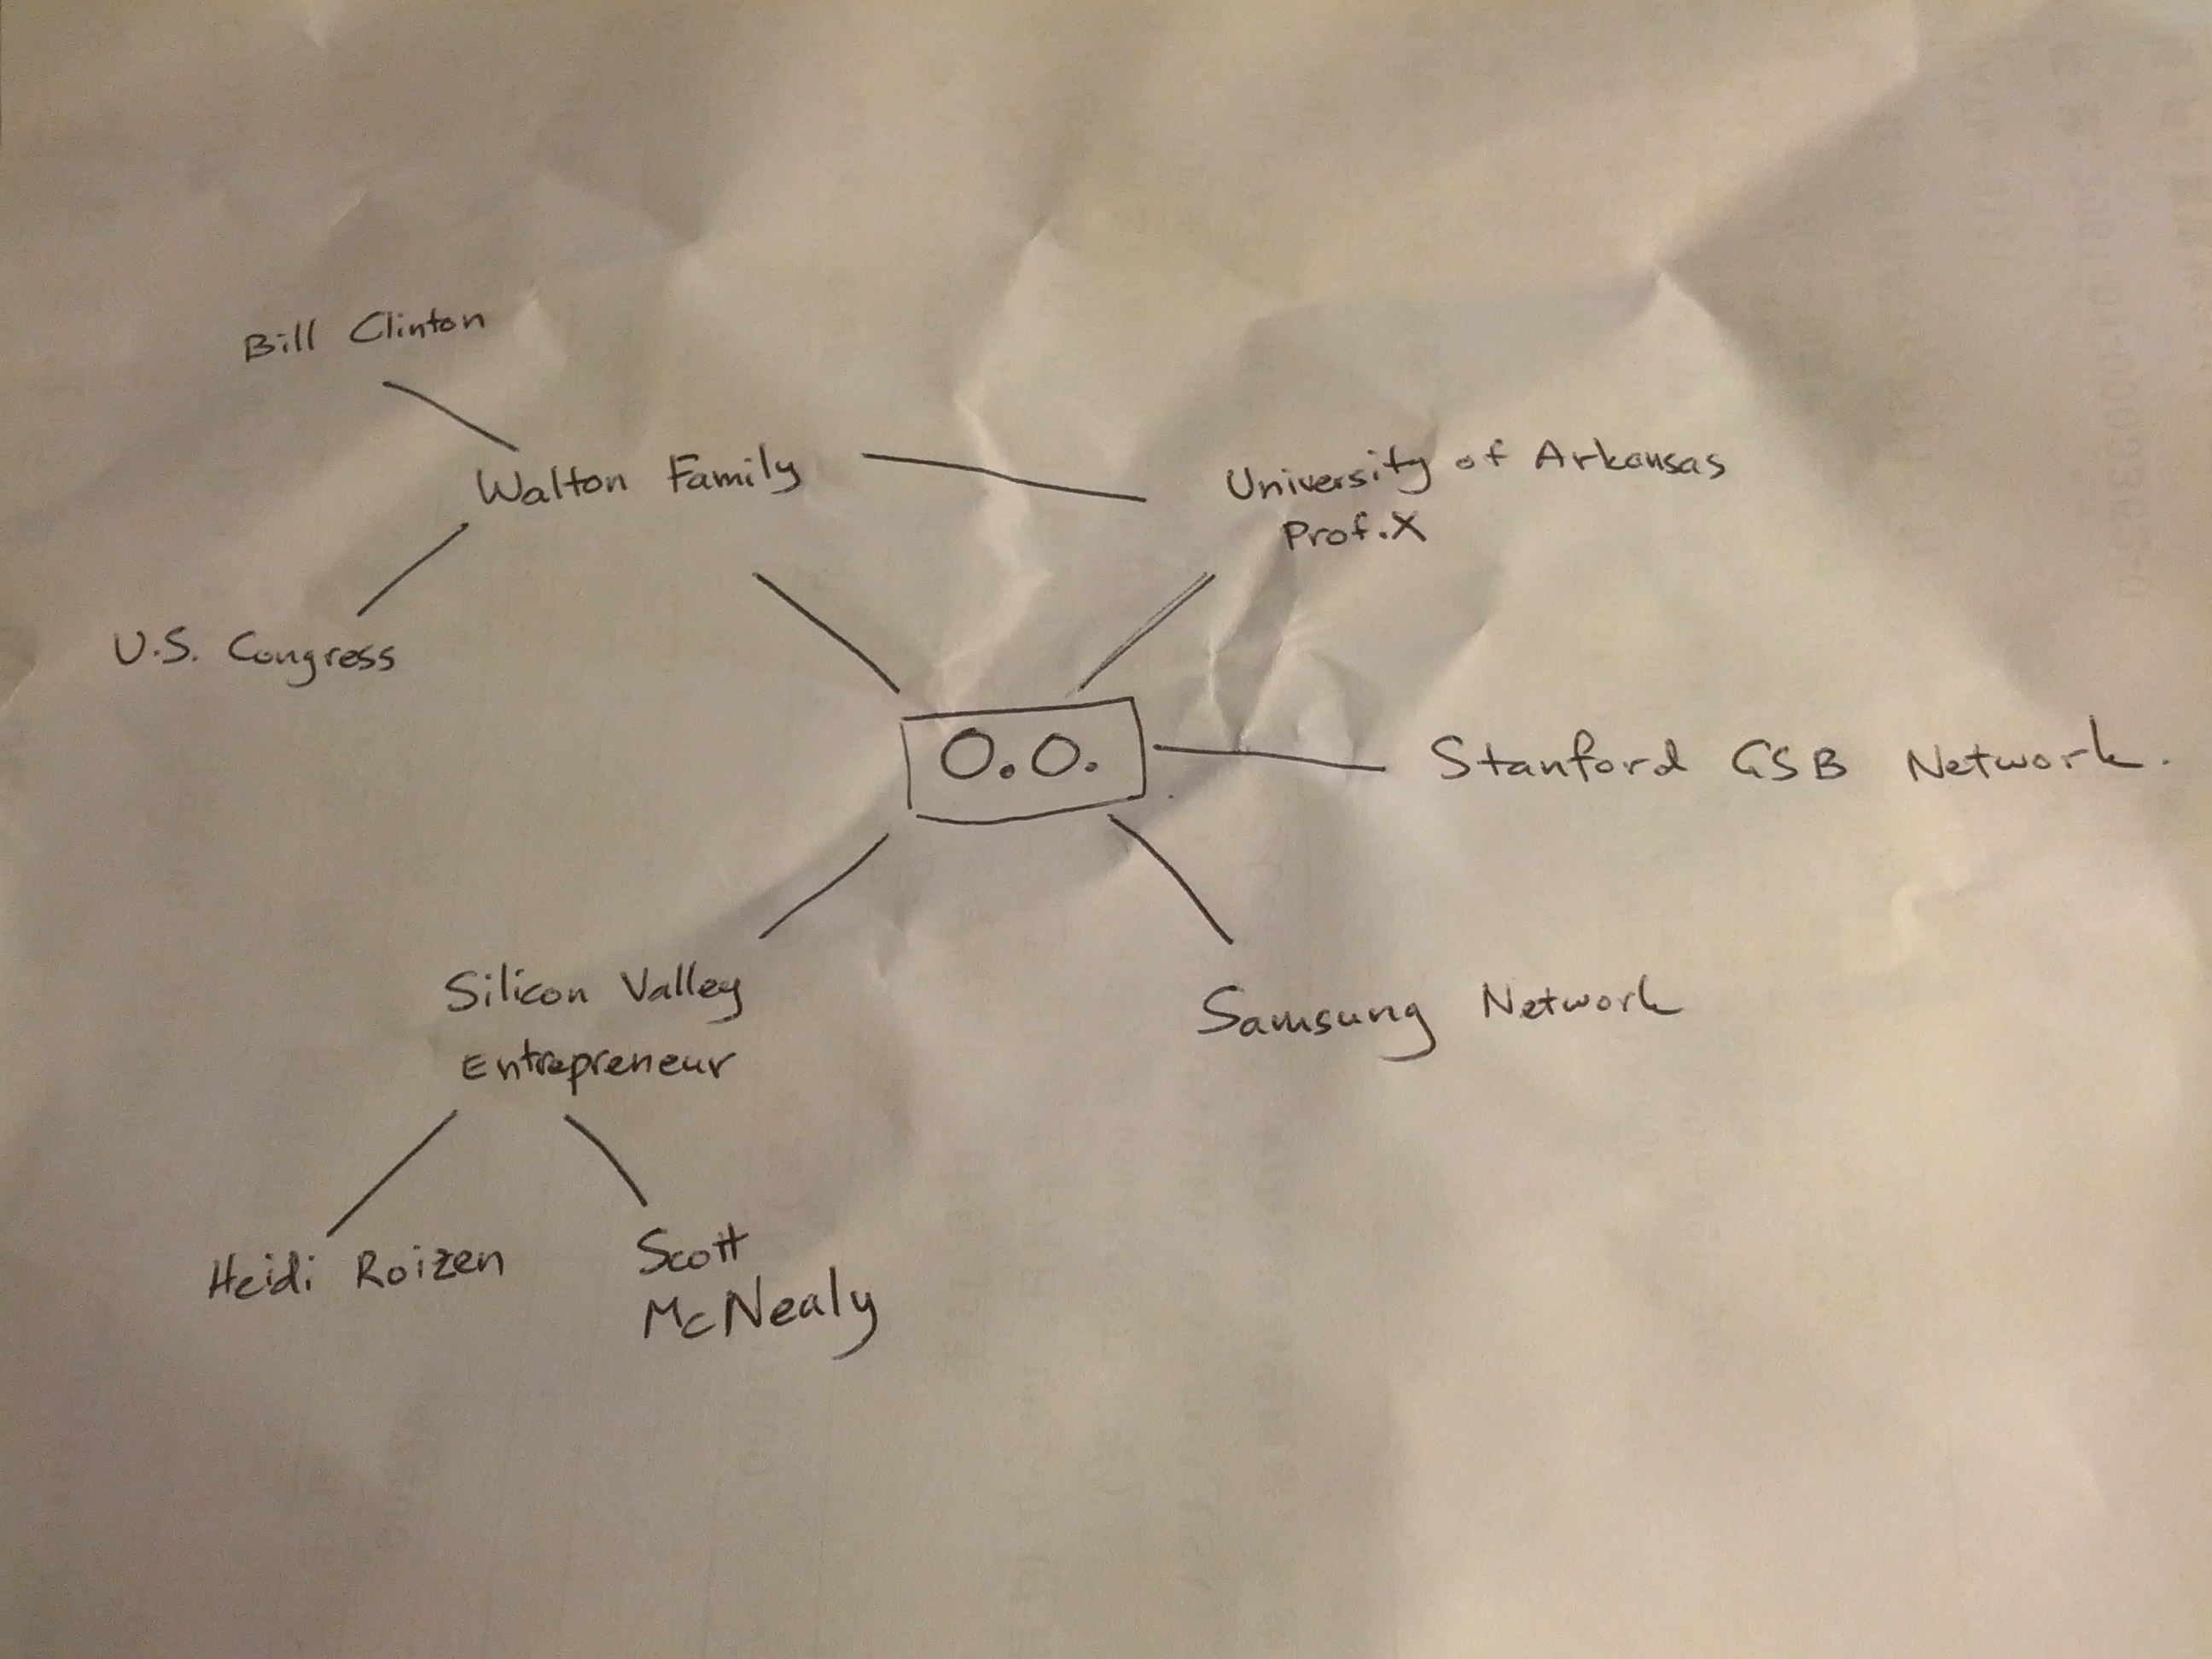 Bill Clinton
Walton Family
University of Arkansas
Prof. X
U.S. Congress
O.O.
Stanford GSB Network.
Silicon Valley
Entrepreneur
Samsung Network
Heidi Roizen
Scott
McNealy